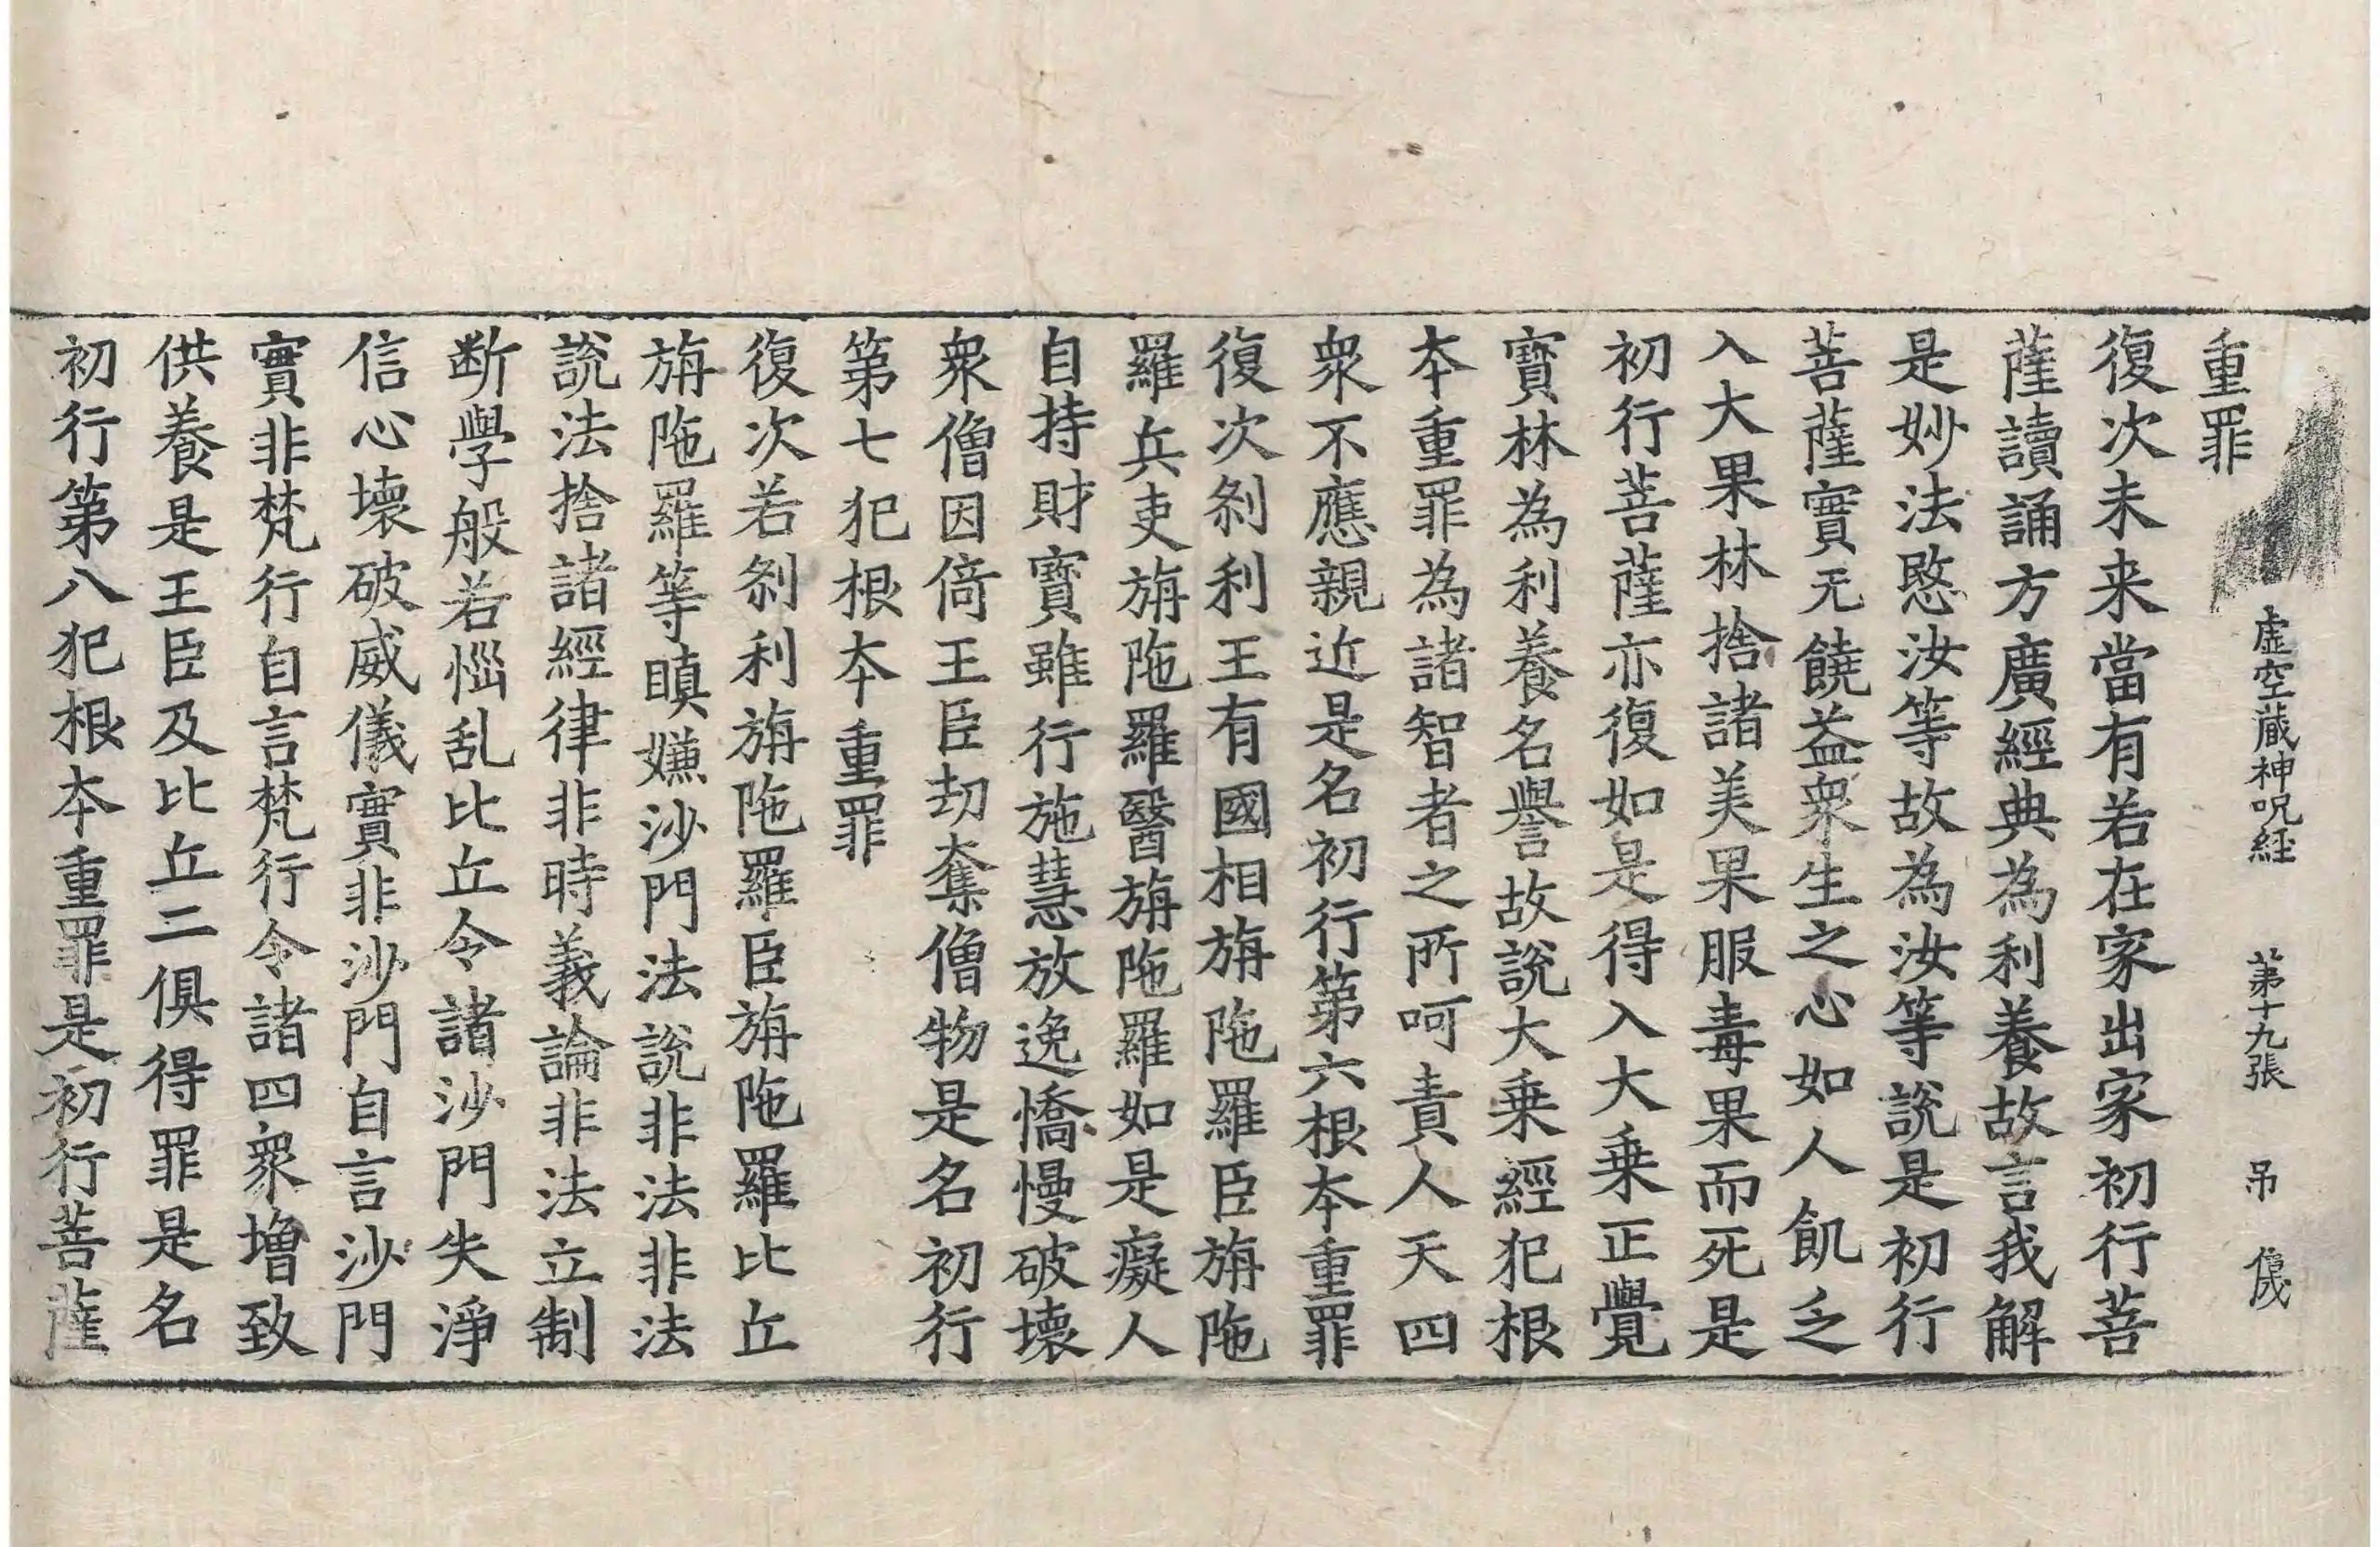 虛空蔵神呪経 第十九張 吊
重罪
復次未来當有若在家出家初行菩
薩讀誦方廣經典為利養故言我解
是妙法愍汝等故為汝等說是初行
菩薩實无饒益衆生之心如人飢乏
入大果林捨諸美果服毒果而死是
初行菩薩亦復如是得入大乗正覺
寳林為利養名譽故說大乗經犯根
夲重罪為諸智者之所呵責人天四
衆不應親近是名初行第六根夲重罪
復次刹利王有國相旃陁羅臣旃陁
羅兵吏旃陁羅醫旃陁羅如是癡人
自持財寳雖行施慧放逸憍慢破壞
衆僧因倚王臣刧奪僧物是名初行
第七犯根夲重罪
復次若刹利旃陁羅臣旃陁羅比丘
旃陁羅等瞋嫌沙門法說非法非法
說法捨諸經律非時義論非法立制
断學般若惱乱比丘令諸沙門失淨
信心壞破威儀實非沙門自言沙門
實非梵行自言梵行令諸四衆增致
供養是王臣及比丘二俱得罪是名
初行第八犯根夲重罪是初行菩薩